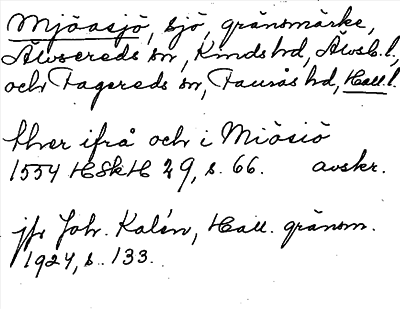 Mjöasjö, sjö, gränsmärke,
Älvsereds sn, Kinds hd, Älvsb. l.,
och Fagereds sn, Faurås hd, Hall. l.
ther ifrå och i Miösiö
1554 HSkH 29, s. 66. avskr.
jfr Joh. Kalén, Hall. gränsm.
1924, s. 133.